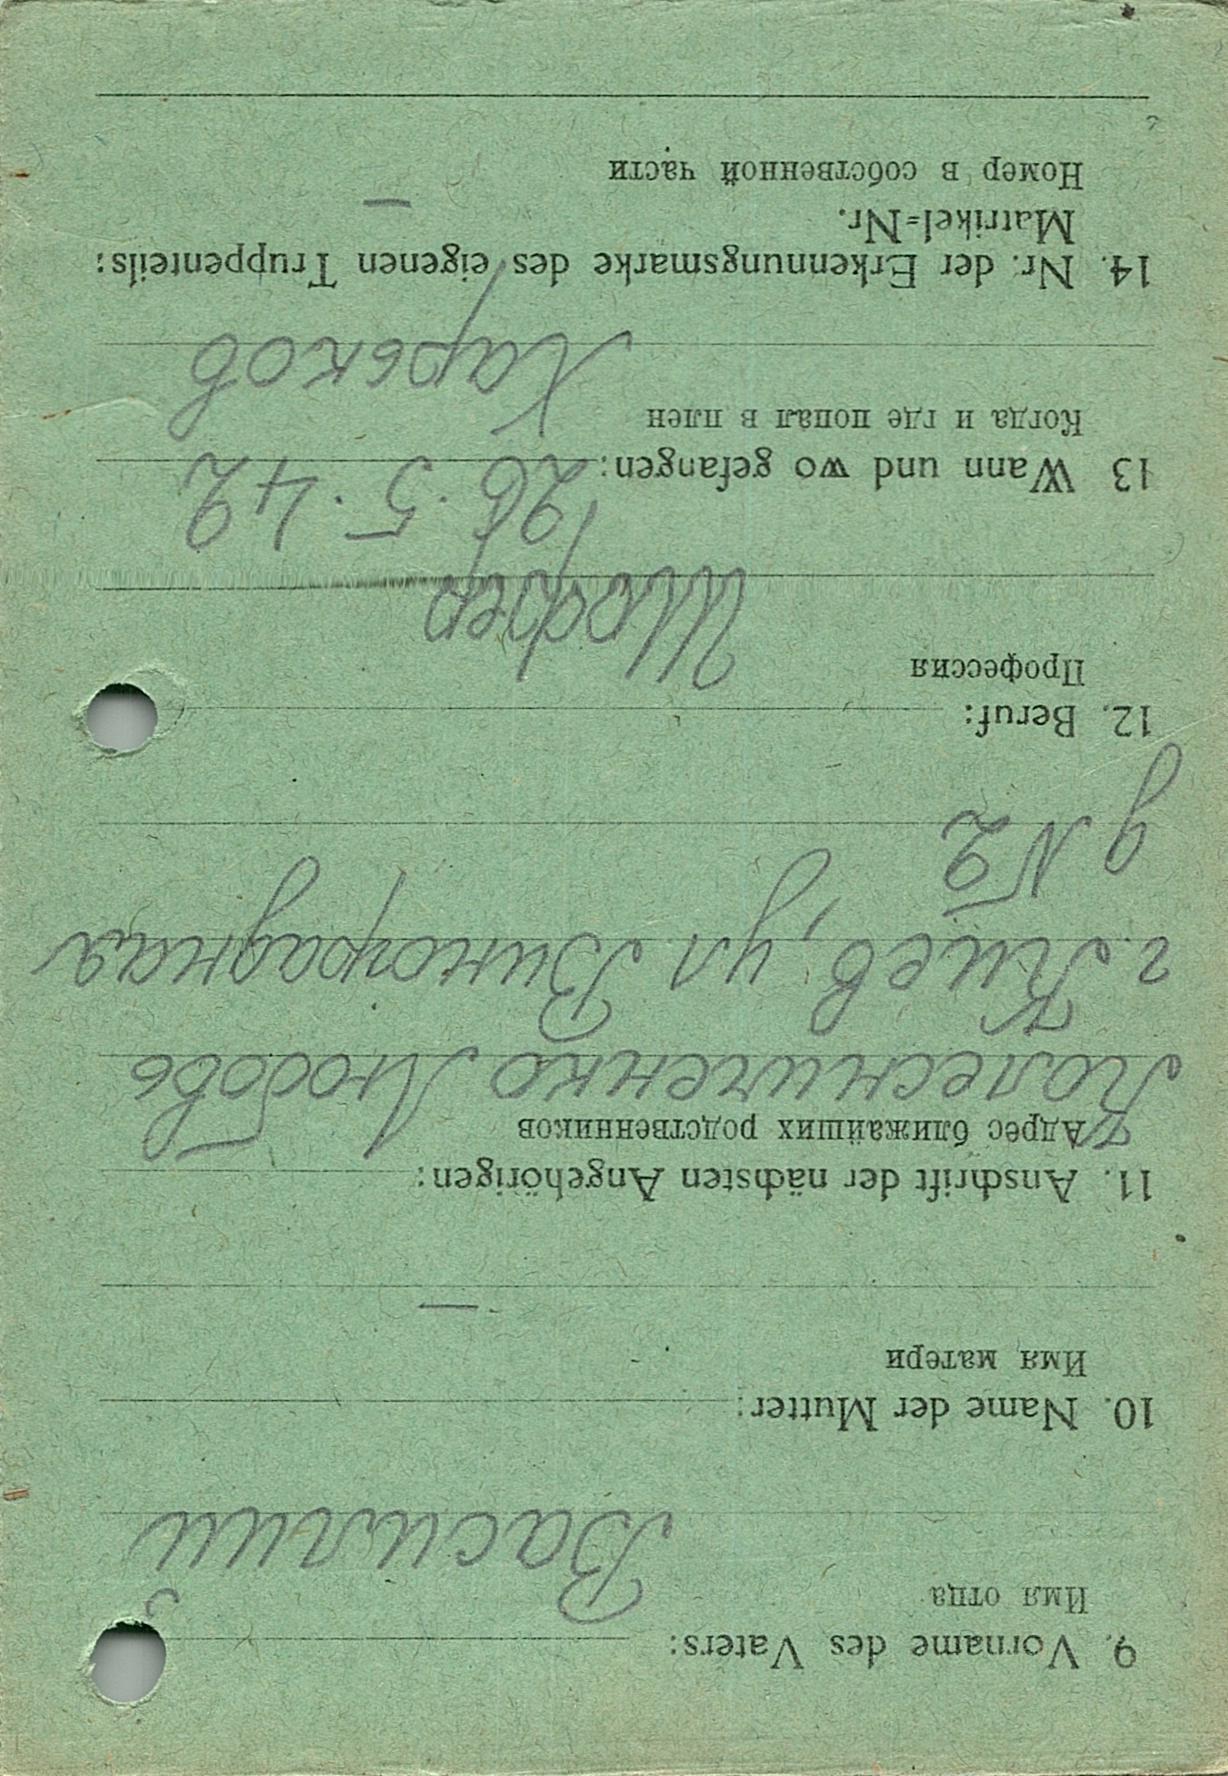 9. Vorname des Vaters:
Имя отца
Василий
10. Name der Mutter:
Имя матери
—
11. Anschrift der nächsten Angehörigen:
Адрес ближайших родственников
Колесниченко Любовь
г. Киев, ул Виноградная
д № 2
12. Beruf:
Профессия
Шофер
13 Wann und wo gefangen: 26.5.42
Когда и где попал в плен
Харьков
14. Nr. der Erkennungsmarke des eigenen Truppenteils:
Matrikel=Nr.
Номер в собственной части
—